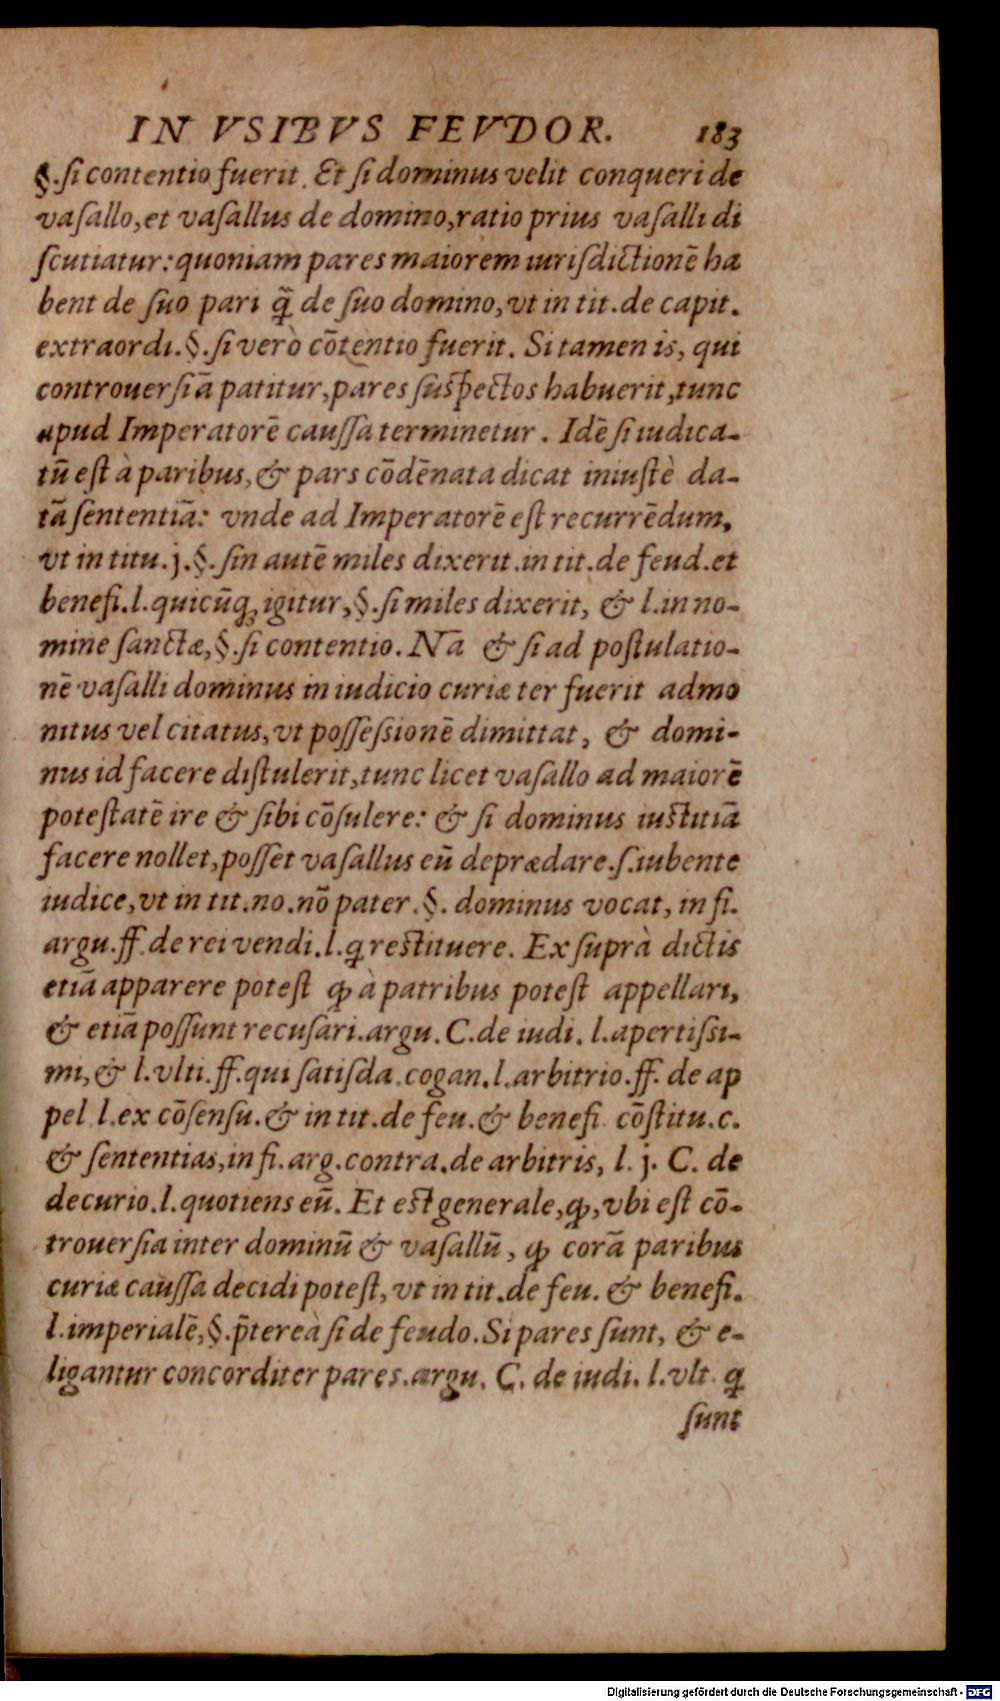 IN VSIBVS FEVDOR. 183
§.ſi contentio fuerit. Et ſi dominus velit conqueri de
vaſallo, et vaſallus de domino, ratio prius vaſalli di
ſcutiatur: quoniam pares maiorem iuriſdictionē ha
bent de ſuo pari q̃ de ſuo domino, vt in tit. de capit.
extraordi.§.ſi verò cōtentio fuerit. Si tamen is, qui
controuerſiā patitur, pares ſuſpectos habuerit, tunc
apud Imperatorē cauſſa terminetur. Idē ſi iudica-
tū eſt à paribus, & pars cōdēnata dicat iniuſtè da-
tā ſententiā: vnde ad Imperatorē eſt recurrēdum,
vt in titu. j.§.ſin autē miles dixerit. in tit. de feud. et
benefi.l.quicūq; igitur,§.ſi miles dixerit, & l.in no-
mine ſanctæ,§.ſi contentio. Nā & ſi ad poſtulatio-
nē vaſalli dominus in iudicio curiæ ter fuerit admo
nitus vel citatus, vt poſſeſsionē dimittat, & domi-
nus id facere diſtulerit, tunc licet vaſallo ad maiorē
poteſtatē ire & ſibi cōſulere: & ſi dominus iuſtitiā
facere nollet, poſſet vaſallus eū deprædare.ſ.iubente
iudice, vt in tit. no. nō pater.§. dominus vocat, in fi.
argu.ff. de rei vendi.l.q reſtituere. Ex ſuprà dictis
etiā apparere poteſt ꝙ à patribus poteſt appellari,
& etiā poſſunt recuſari.argu. C.de iudi. l.apertiſsi-
mi, & l.vlti.ff.qui ſatiſda.cogan.l.arbitrio.ff. de ap
pel l.ex cōſenſu.& in tit.de feu.& benefi. cōſtitu.c.
& ſententias, in fi. arg.contra.de arbitris, l. j. C. de
decurio.l.quotiens eū. Et eſt generale, ꝙ, vbi eſt cō-
trouerſia inter dominū & vaſallū, ꝙ corā paribus
curiæ cauſſa decidi poteſt, vt in tit.de feu. & benefi.
l.imperialē,§.p̄tereà ſi de feudo. Si pares ſunt, & e-
ligantur concorditer pares.argu. C. de iudi. l.vlt. q
ſunt
Digitalisierung gefördert durch die Deutsche Forschungsgemeinschaft - DFG